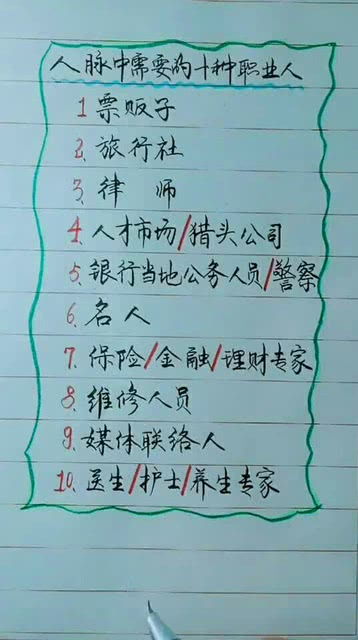 人脉中需要的十种职业人
1票贩子
2、旅行社
3、律 师
4、人才市场/猎头公司
5、银行当地公务人员/警察
6、名人
7、保险/金融/理财专家
8、维修人员
9、媒体联络人
10、医生/护士/养生专家